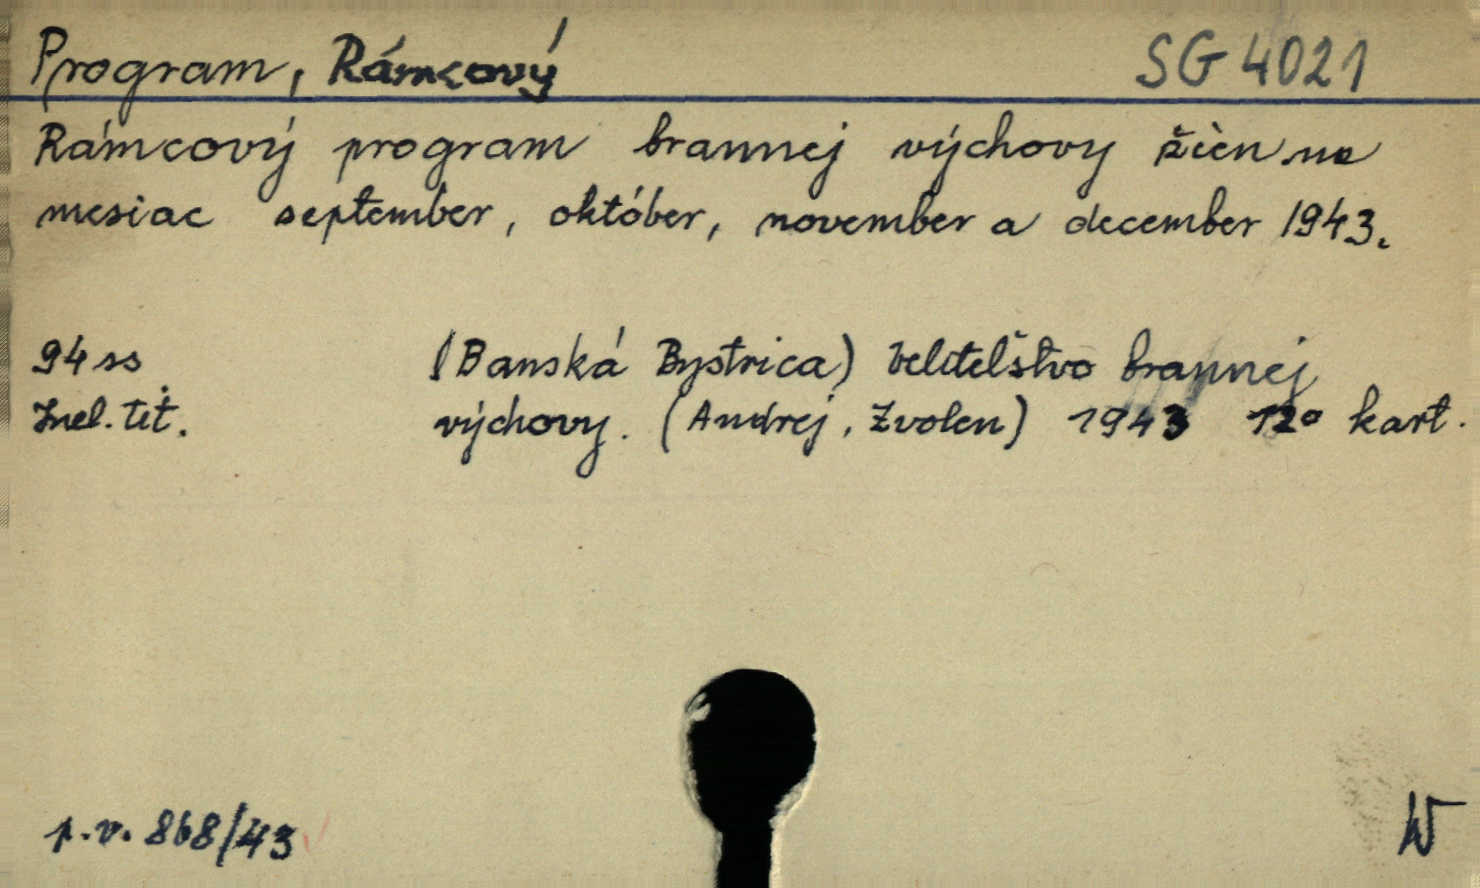 Program, Rámcový SG 4021
Rámcový program brannej výchovy žien na
mesiac september, október, november a december 1943.
94 ss (Banská Bystrica) Veliteľstvo brannej
Incl. tit. výchovy. (Andrej, Zvolen) 1943 12° kart.
p.v. 868/43 W